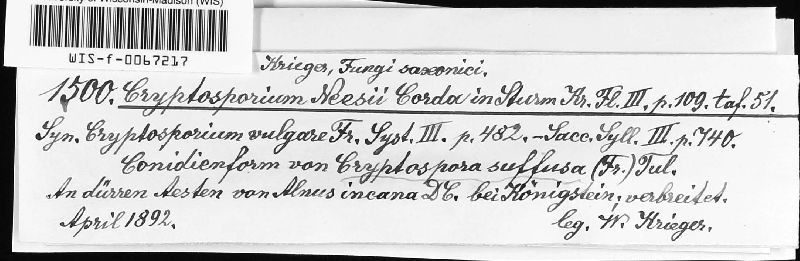 University of Wisconsin-Madison (WIS)
WIS-f-0067217
Krieger, Fungi saxonici.
1500. Cryptosporium Neesii Corda in Sturm Kr. Fl. III. p. 109. taf. 51.
Syn. Cryptosporium vulgare Fr. Syst. III. p. 482. – Sacc. Syll. III. p. 740.
Conidienform von Cryptospora suffusa (Fr.) Tul.
An dürren Aesten von Alnus incana DC. bei Königstein, verbreitet.
April 1892.
leg. W. Krieger.